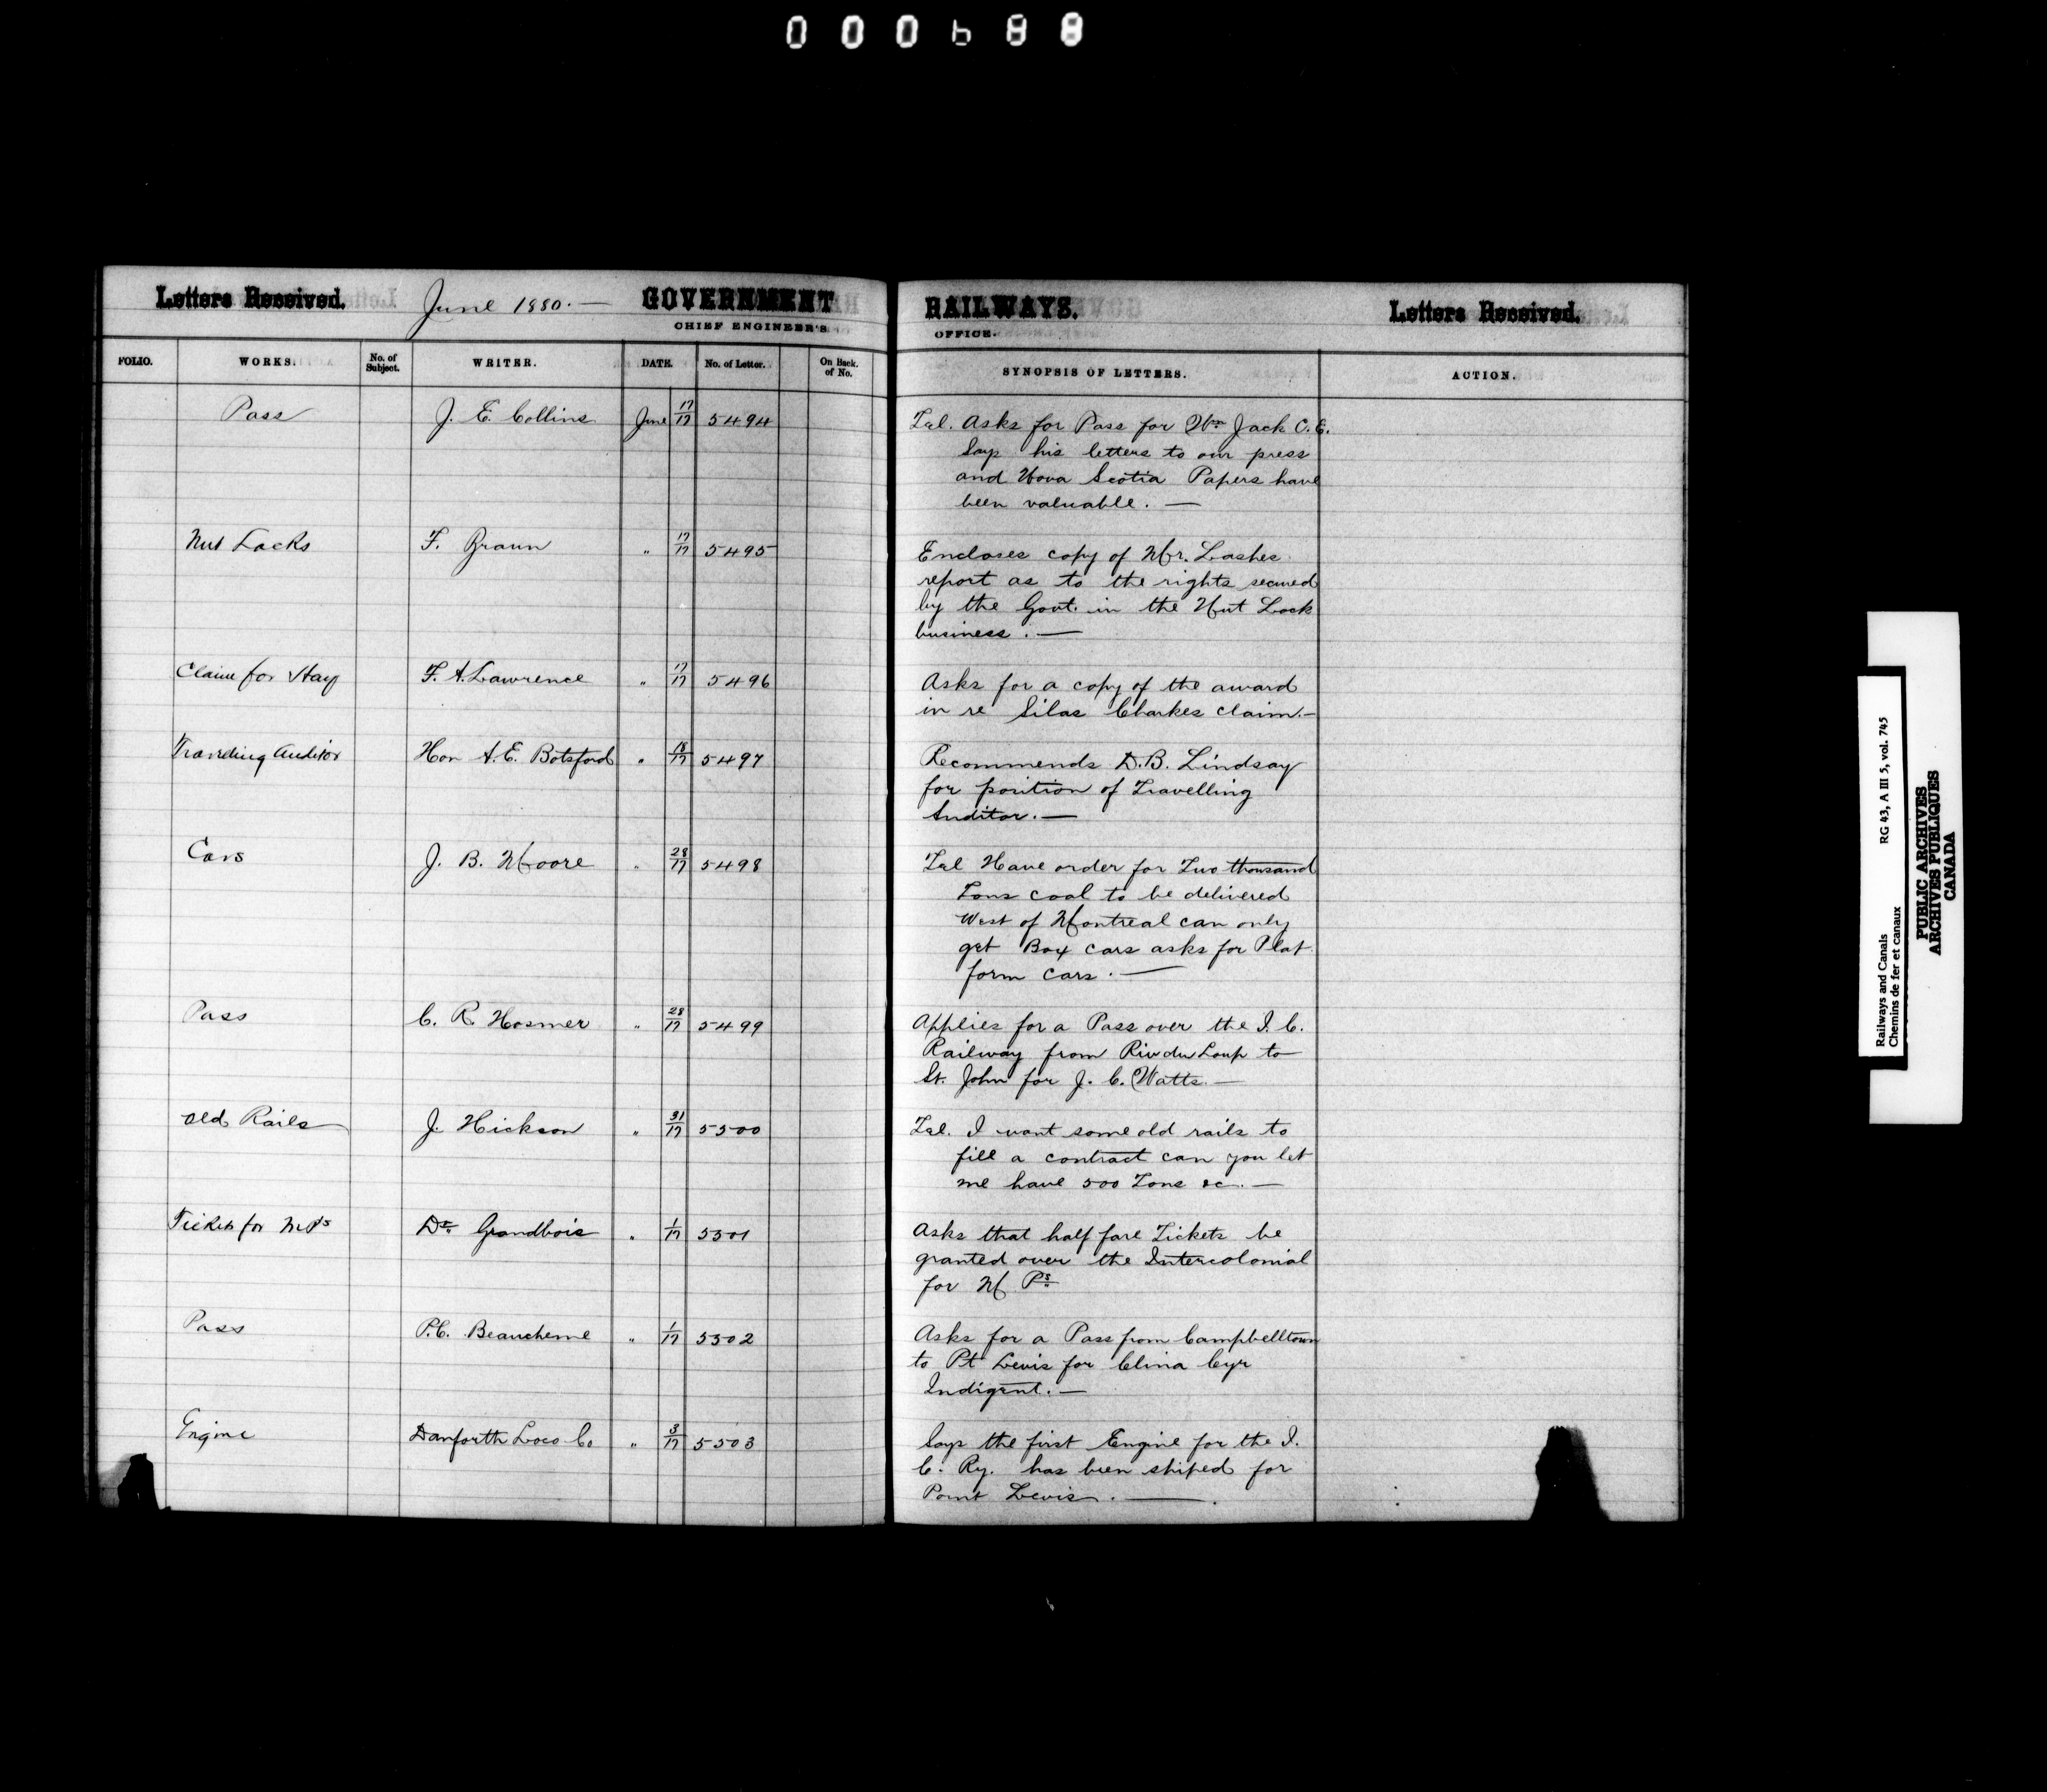 000688
Letters Received. June 1880. — GOVERNMENT RAILWAYS. Letters Received.
CHIEF ENGINEER'S OFFICE.
FOLIO. WORKS. No. of Subject. WRITER. DATE. No. of Letter. On Back. of No. SYNOPSIS OF LETTERS. ACTION.
Pass J. E. Collins June 17/17 5494 Tel. Asks for Pass for Wm. Jack C.E.
Says his letters to our press
and Nova Scotia Papers have
been valuable. —
Nut Locks F. Braun " 17/17 5495 Encloses copy of Mr. Lashes
report as to the rights secured
by the Govt. in the Nut Lock
business. —
Claim for Hay F. A. Lawrence " 17/17 5496 Asks for a copy of the award
in re Silas Clarkes claim. —
Travelling Auditor Hon A. E. Botsford " 18/17 5497 Recommends D.B. Lindsay
for position of Travelling
Auditor. —
Cars J. B. Moore " 28/17 5498 Tel Have order for Two thousand
Tons coal to be delivered
West of Montreal can only
get Box cars asks for Plat
form cars. —
Pass C. R. Hosmer " 28/17 5499 Applies for a Pass over the I. C.
Railway from Riv du Loup to
St. John for J. C. Watts. —
Old Rails J. Hickson " 31/17 5500 Tel. I want some old rails to
fill a contract can you let
me have 500 Tons &c. —
Tickets for M Ps Dr. Grandbois " 1/17 5501 Asks that half fare Tickets be
granted over the Intercolonial
for M Ps
Pass P.C. Beaucheme " 1/17 5502 Asks for a Pass from Campbelltown
to Pt Levis for Clina Cyr
Indigent. —
Engine Danforth Loco Co " 3/17 5503 Says the first Engine for the I.
C. Ry. has been shiped for
Point Levis. —
Railways and Canals RG 43, A III 5, vol. 745
Chemins de fer et canaux
PUBLIC ARCHIVES
ARCHIVES PUBLIQUES
CANADA